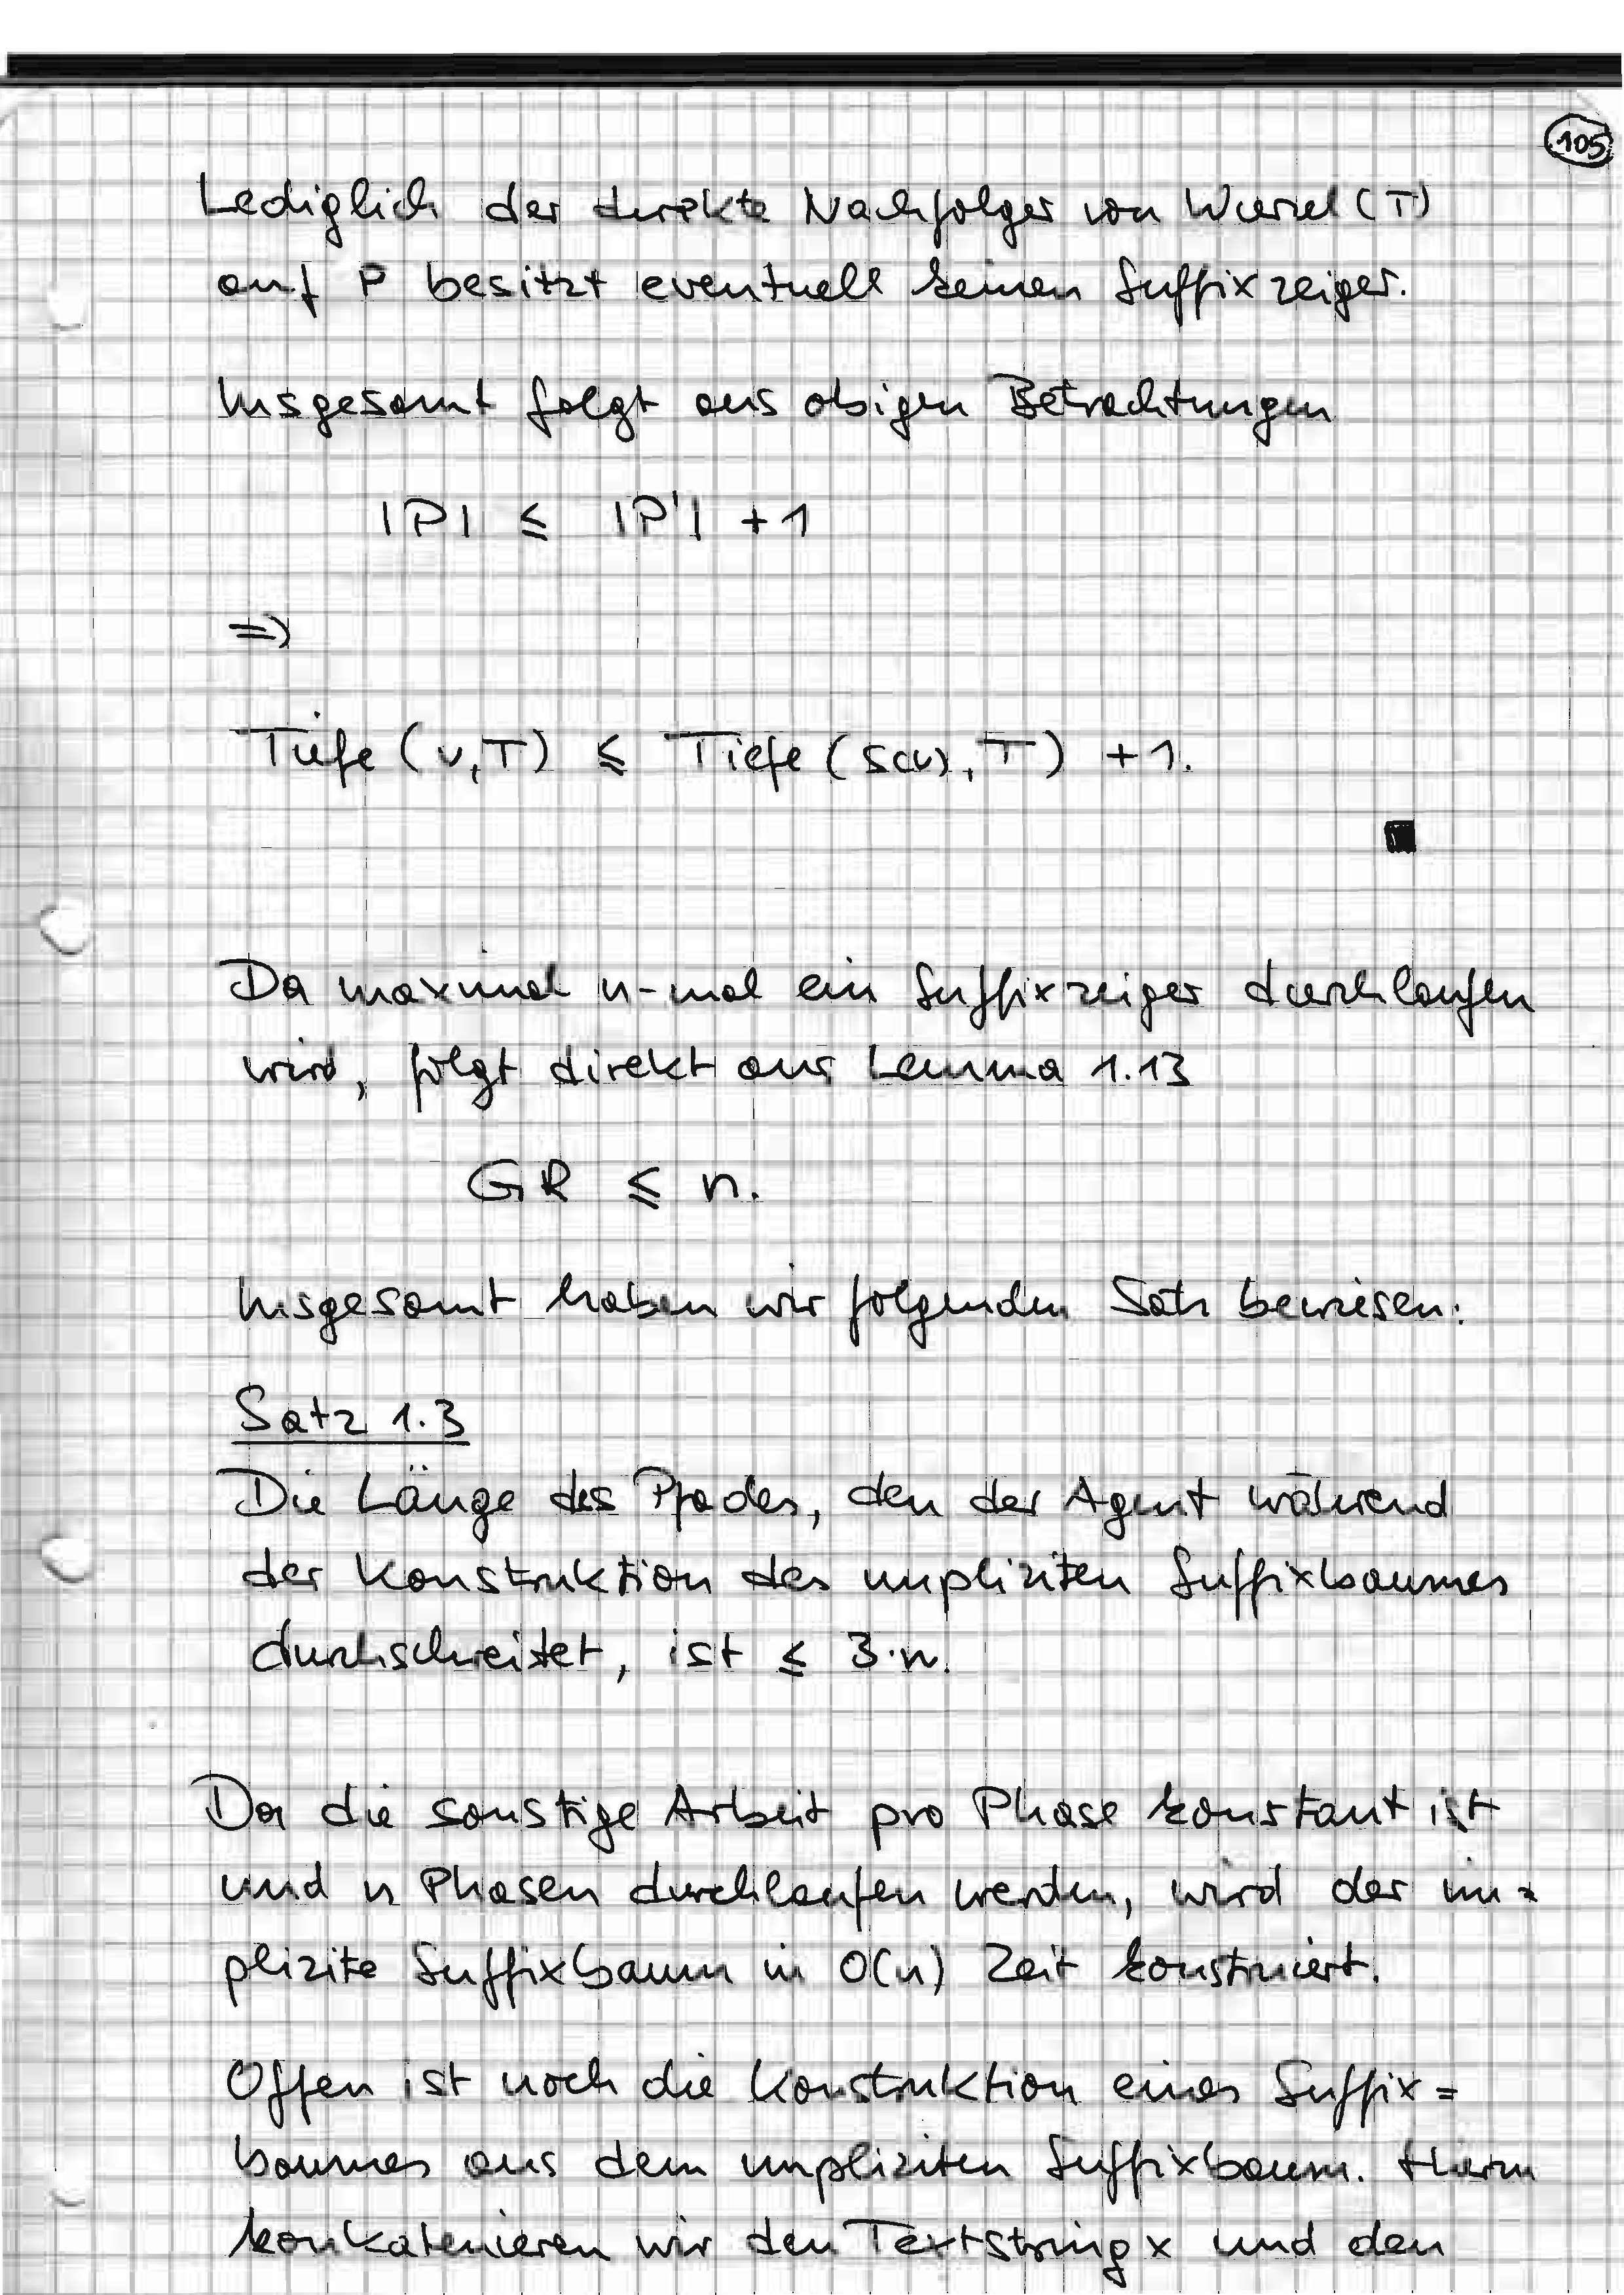 105
Lediglich der direkte Nachfolger von Wurzel(T)
auf P besitzt eventuell keinen Suffixzeiger.
Insgesamt folgt aus obigen Betrachtungen
|P| ≤ |P'| + 1
⇒
Tiefe (v,T) ≤ Tiefe (s(v),T) + 1.
Da maximal n-mal ein Suffixzeiger durchlaufen
wird, folgt direkt aus Lemma 1.13
GR ≤ n.
Insgesamt haben wir folgenden Satz bewiesen:
Satz 1.3
Die Länge des Pfades, den der Agent während
der Konstruktion des impliziten Suffixbaumes
durchschreitet, ist ≤ 3·n.
Da die sonstige Arbeit pro Phase konstant ist
und n Phasen durchlaufen werden, wird der im-
plizite Suffixbaum in O(n) Zeit konstruiert.
Offen ist noch die Konstruktion eines Suffix=
baumes aus dem impliziten Suffixbaum. Hierzu
konkatenieren wir den Textstring x und den